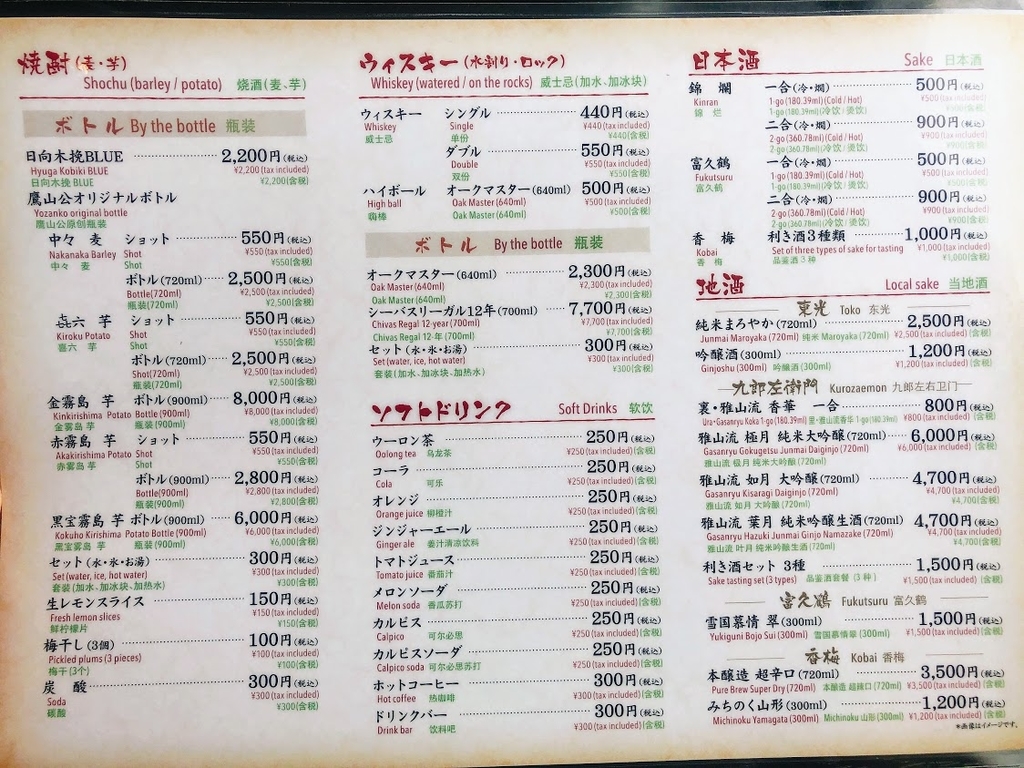 焼酎(麦・芋)
Shochu (barley / potato) 烧酒(麦、芋)
ボトル By the bottle 瓶装
日向木挽BLUE 2,200円(税込)
Hyuga Kobiki BLUE ¥2,200(tax included)
日向木挽 BLUE ¥2,200(含税)
鷹山公オリジナルボトル
Yozanko original bottle
鹰山公原创瓶装
中々 麦 ショット 550円(税込)
Nakanaka Barley Shot ¥550(tax included)
中々 麦 Shot ¥550(含税)
ボトル(720ml) 2,500円(税込)
Bottle(720ml) ¥2,500(tax included)
瓶装(720ml) ¥2,500(含税)
㐂六 芋 ショット 550円(税込)
Kiroku Potato Shot ¥550(tax included)
喜六 芋 Shot ¥550(含税)
ボトル(720ml) 2,500円(税込)
Shot(720ml) ¥2,500(tax included)
瓶装(720ml) ¥2,500(含税)
金霧島 芋 ボトル(900ml) 8,000円(税込)
Kinkirishima Potato Bottle (900ml) ¥8,000(tax included)
金雾岛 芋 瓶装(900ml) ¥8,000(含税)
赤霧島 芋 ショット 550円(税込)
Akakirishima Potato Shot ¥550(tax included)
赤雾岛 芋 Shot ¥550(含税)
ボトル(900ml) 2,800円(税込)
Bottle(900ml) ¥2,800(tax included)
瓶装(900ml) ¥2,800(含税)
黒宝霧島 芋 ボトル(900ml) 6,000円(税込)
Kokuho Kirishima Potato Bottle (900ml) ¥6,000(tax included)
黑宝雾岛 芋 瓶装(900ml) ¥6,000(含税)
セット(水・氷・お湯) 300円(税込)
Set(water, ice, hot water) ¥300(tax included)
套装(加水、加冰块、加热水) ¥300(含税)
生レモンスライス 150円(税込)
Fresh lemon slices ¥150(tax included)
鲜柠檬片 ¥150(含税)
梅干し(3個) 100円(税込)
Pickled plums (3 pieces) ¥100(tax included)
梅干(3个) ¥100(含税)
炭酸 300円(税込)
Soda ¥300(tax included)
碳酸 ¥300(含税)
ウィスキー(水割り・ロック)
Whiskey (watered / on the rocks) 威士忌(加水、加冰块)
ウィスキー シングル 440円(税込)
Whiskey Single ¥440(tax included)
威士忌 单份 ¥440(含税)
ダブル 550円(税込)
Double ¥550(tax included)
双份 ¥550(含税)
ハイボール オークマスター(640ml) 500円(税込)
High ball Oak Master (640ml) ¥500(tax included)
嗨棒 Oak Master (640ml) ¥500(含税)
ボトル By the bottle 瓶装
オークマスター(640ml) 2,300円(税込)
Oak Master (640ml) ¥2,300(tax included)
Oak Master (640ml) ¥2,300(含税)
シーバスリーガル12年(700ml) 7,700円(税込)
Chivas Regal 12-year (700ml) ¥7,700(tax included)
Chivas Regal 12-年 (700ml) ¥7,700(含税)
セット(水・氷・お湯) 300円(税込)
Set (water, ice, hot water) ¥300(tax included)
套装(加水、加冰块、加热水) ¥300(含税)
ソフトドリンク Soft Drinks 软饮
ウーロン茶 250円(税込)
Oolong tea 乌龙茶 ¥250(tax included) (含税)
コーラ 250円(税込)
Cola 可乐 ¥250(tax included) (含税)
オレンジ 250円(税込)
Orange juice 柳橙汁 ¥250(tax included) (含税)
ジンジャーエール 250円(税込)
Ginger ale 姜汁清凉饮料 ¥250(tax included) (含税)
トマトジュース 250円(税込)
Tomato juice 番茄汁 ¥250(tax included) (含税)
メロンソーダ 250円(税込)
Melon soda 香瓜苏打 ¥250(tax included) (含税)
カルピス 250円(税込)
Calpico 可尔必思 ¥250(tax included) (含税)
カルピスソーダ 250円(税込)
Calpico soda 可尔必思苏打 ¥250(tax included) (含税)
ホットコーヒー 300円(税込)
Hot coffee 热咖啡 ¥300(tax included) (含税)
ドリンクバー 300円(税込)
Drink bar 饮料吧 ¥300(tax included) (含税)
日本酒 Sake 日本酒
錦爛 一合(冷・燗) 500円(税込)
Kinran 1-go (180.39ml) (Cold / Hot) ¥500(tax included)
锦烂 1-go (180.39ml) (冷饮 / 烫饮) ¥500(含税)
二合(冷・燗) 900円(税込)
2-go (360.78ml) (Cold / Hot) ¥900(tax included)
2-go (360.78ml) (冷饮 / 烫饮) ¥900(含税)
富久鶴 一合(冷・燗) 500円(税込)
Fukutsuru 1-go (180.39ml) (Cold / Hot) ¥500(tax included)
富久鹤 1-go (180.39ml) (冷饮 / 烫饮) ¥500(含税)
二合(冷・燗) 900円(税込)
2-go (360.78ml) (Cold / Hot) ¥900(tax included)
2-go (360.78ml) (冷饮 / 烫饮) ¥900(含税)
香梅 利き酒3種類 1,000円(税込)
Kobai Set of three types of sake for tasting ¥1,000(tax included)
香梅 品鉴酒 3 种 ¥1,000(含税)
地酒 Local sake 当地酒
東光 Toko 东光
純米まろやか(720ml) 2,500円(税込)
Junmai Maroyaka (720ml) 纯米 Maroyaka (720ml) ¥2,500(tax included) (含税)
吟醸酒(300ml) 1,200円(税込)
Ginjoshu (300ml) 吟酿酒 (300ml) ¥1,200(tax included) (含税)
九郎左衛門 Kurozaemon 九郎左右卫门
裏・雅山流 香華 一合 800円(税込)
Ura-Gasanryu Koka 1-go (180.39ml) 里・雅山流香华 1-go (180.39ml) ¥800 (tax included) (含税)
雅山流 極月 純米大吟醸(720ml) 6,000円(税込)
Gasanryu Gokugetsu Junmai Daiginjo (720ml) ¥6,000(tax included) (含税)
雅山流 极月 纯米大吟酿 (720ml)
雅山流 如月 大吟醸(720ml) 4,700円(税込)
Gasanryu Kisaragi Daiginjo (720ml) ¥4,700(tax included)
雅山流 如月 大吟酿 (720ml) ¥4,700(含税)
雅山流 葉月 純米吟醸生酒(720ml) 4,700円(税込)
Gasanryu Hazuki Junmai Ginjo Namazake (720ml) ¥4,700(tax included)
雅山流 叶月 纯米吟酿生酒 (720ml) ¥4,700(含税)
利き酒セット 3種 1,500円(税込)
Sake tasting set (3 types) 品鉴酒套餐 (3 种) ¥1,500(tax included) (含税)
富久鶴 Fukutsuru 富久鹤
雪国慕情 翠(300ml) 1,500円(税込)
Yukiguni Bojo Sui (300ml) 雪国慕情翠 (300ml) ¥1,500 (tax included) (含税)
香梅 Kobai 香梅
本醸造 超辛口(720ml) 3,500円(税込)
Pure Brew Super Dry (720ml) 本酿造 超辣口 (720ml) ¥3,500(tax included) (含税)
みちのく山形(300ml) 1,200円(税込)
Michinoku Yamagata (300ml) Michinoku 山形 (300ml) ¥1,200 (tax included) (含税)
*画像はイメージです。